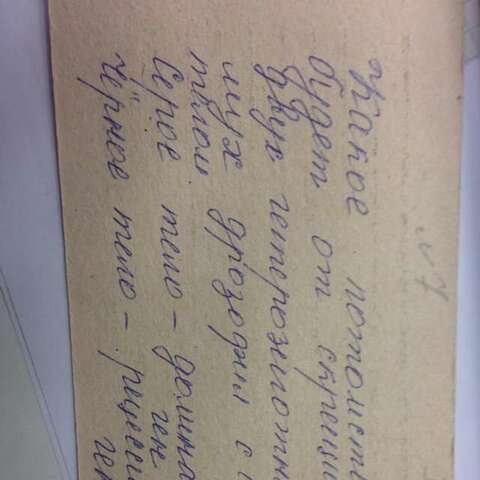 № 7
Какое потомст
будет от скрещи
двух гетерозиготн
мух дрозофил с
телом.
Серое тело - домина
ген
Чёрное тело - рецесси
ген